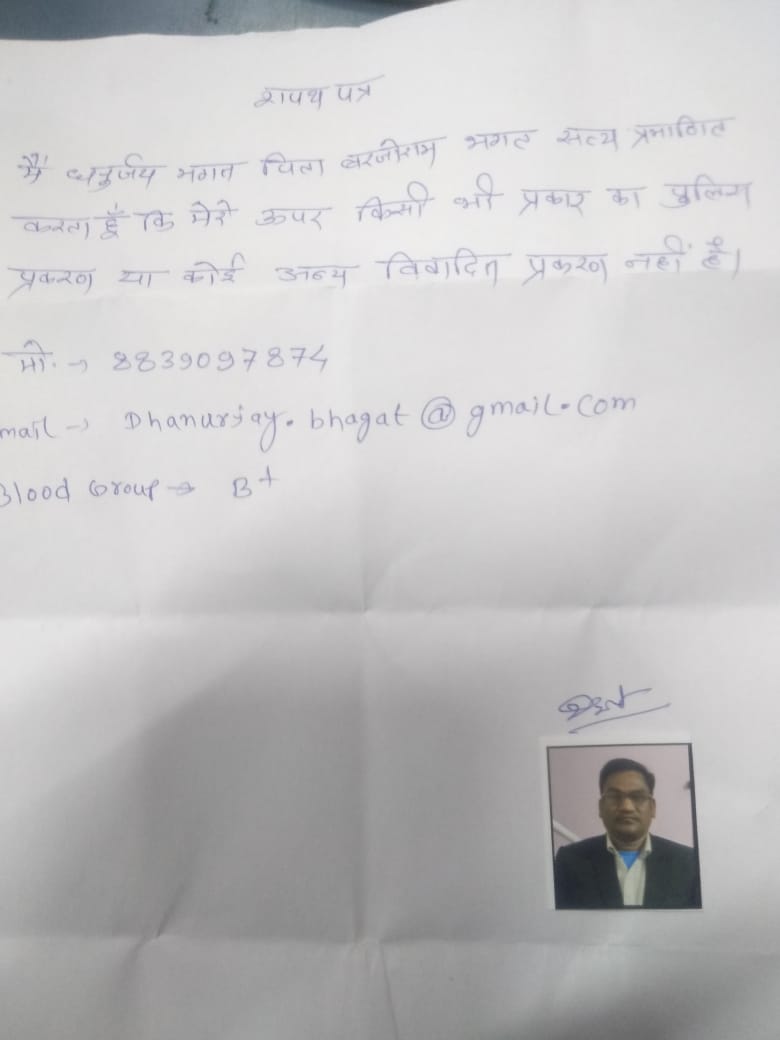 शपथ पत्र
मैं धनुर्जय भगत पिता बरजोराम भगत सत्य प्रमाणित
करता हूँ कि मेरे ऊपर किसी भी प्रकार का पुलिस
प्रकरण या कोई अन्य विवादित प्रकरण नहीं है।
मो. → 8839097874
mail → Dhanurjay.bhagat@gmail.com
Blood Group → B+